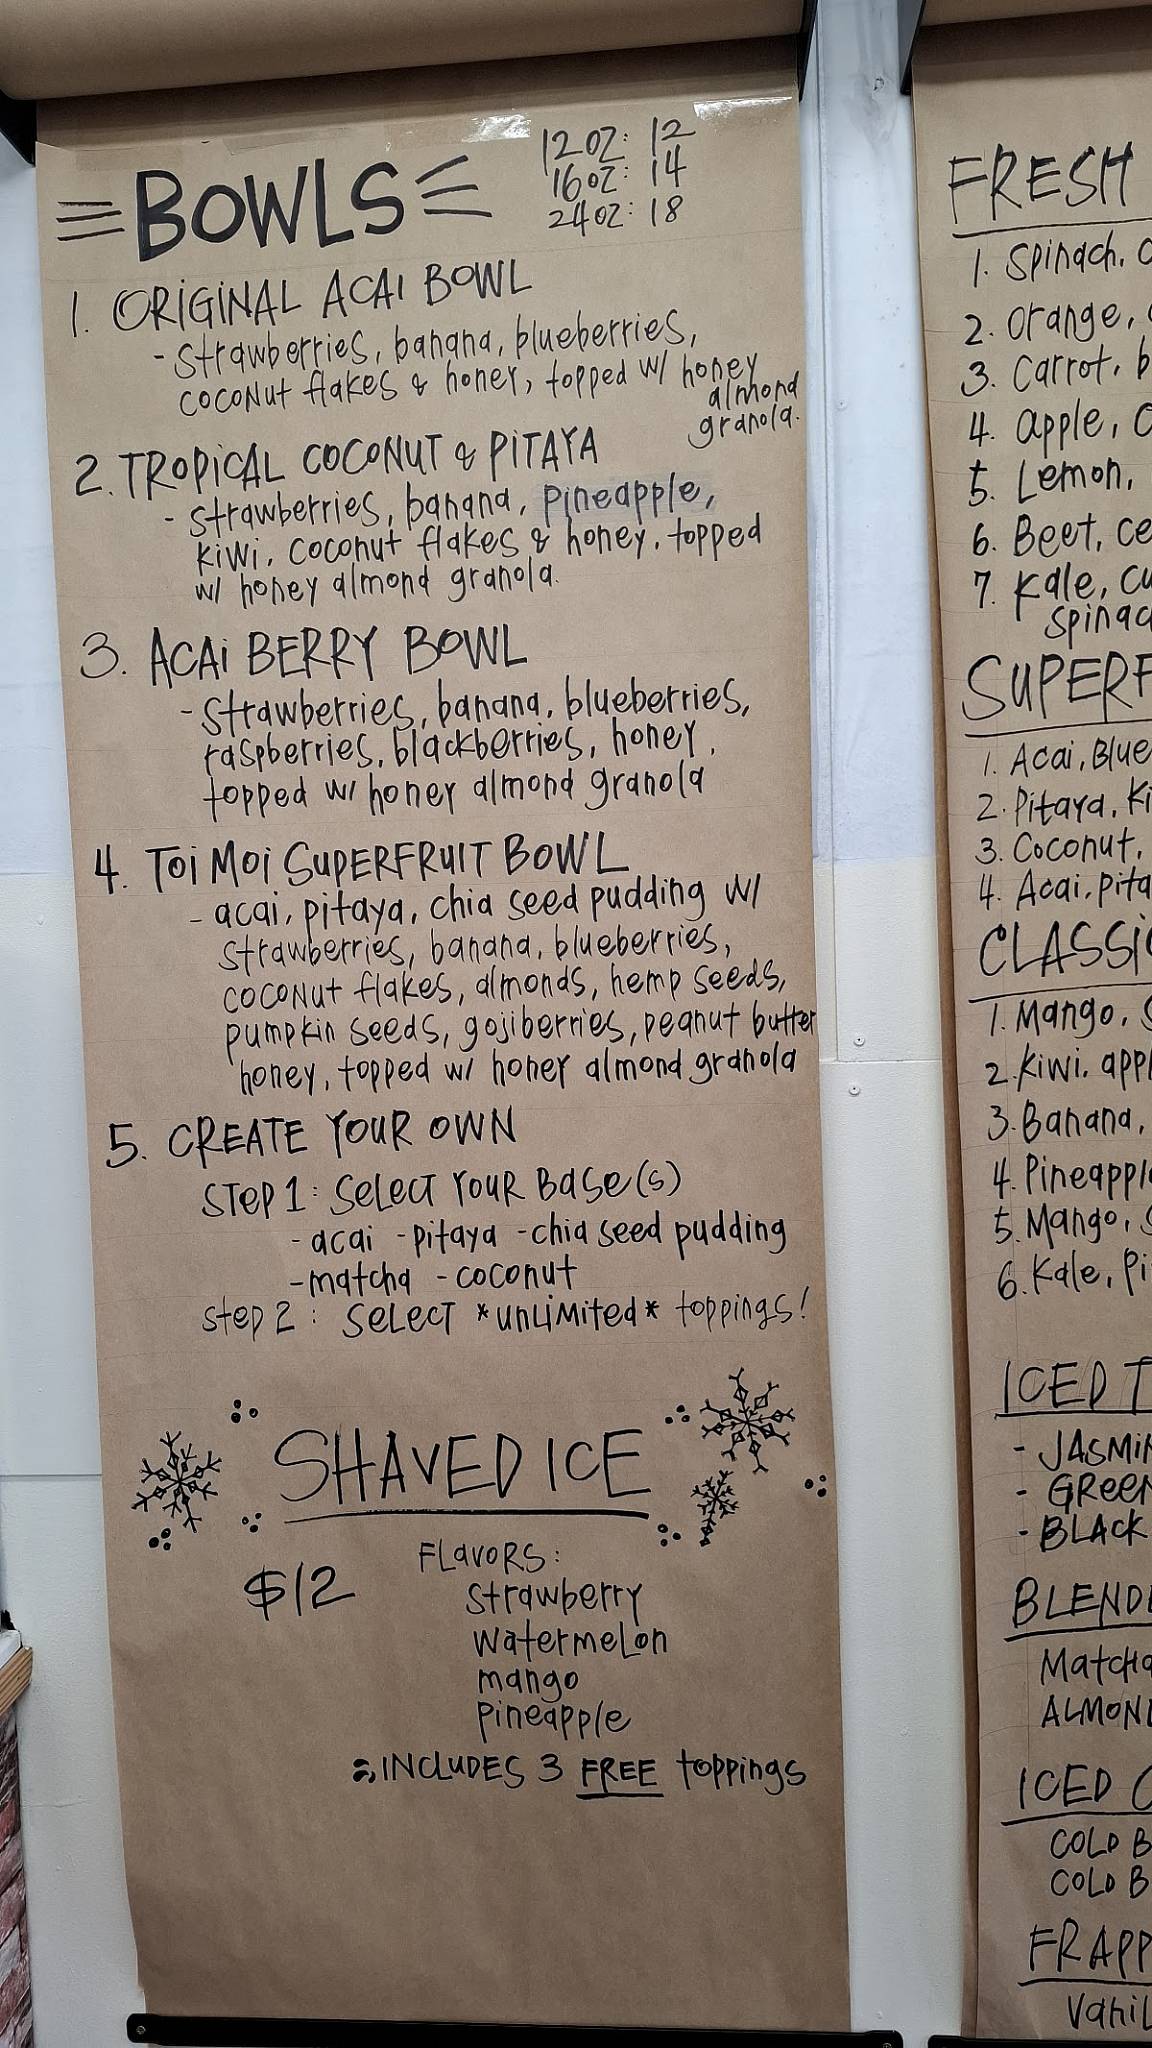 BOWLS
12oz: 12
16oz: 14
24oz: 18
1. ORIGINAL ACAI BOWL
- strawberries, banana, blueberries,
coconut flakes & honey, topped w/ honey
almond
granola.
2. TROPICAL COCONUT & PITAYA
- strawberries, banana, pineapple,
kiwi, coconut flakes & honey, topped
w/ honey almond granola.
3. ACAI BERRY BOWL
- strawberries, banana, blueberries,
raspberries, blackberries, honey,
topped w/ honey almond granola
4. TOI MOI SUPERFRUIT BOWL
- acai, pitaya, chia seed pudding w/
strawberries, banana, blueberries,
coconut flakes, almonds, hemp seeds,
pumpkin seeds, gojiberries, peanut butter
honey, topped w/ honey almond granola
5. CREATE YOUR OWN
STEP 1: SELECT YOUR BASE(S)
- acai - pitaya - chia seed pudding
- matcha - coconut
Step 2: SELECT *UNLIMITED* toppings!
SHAVED ICE
$12
FLAVORS:
strawberry
watermelon
mango
pineapple
INCLUDES 3 FREE toppings
FRESH
1. Spinach,
2. Orange,
3. Carrot,
4. apple,
5. Lemon,
6. Beet,
7. Kale,
1. Acai,
2. Pitaya,
3. Coconut,
4. Acai,
1. Mango,
2. Kiwi,
3. Banana,
4. Pineapple
5. Mango,
6. Kale,
ICED
- GREEN
- BLACK
ICED
COLD
COLD